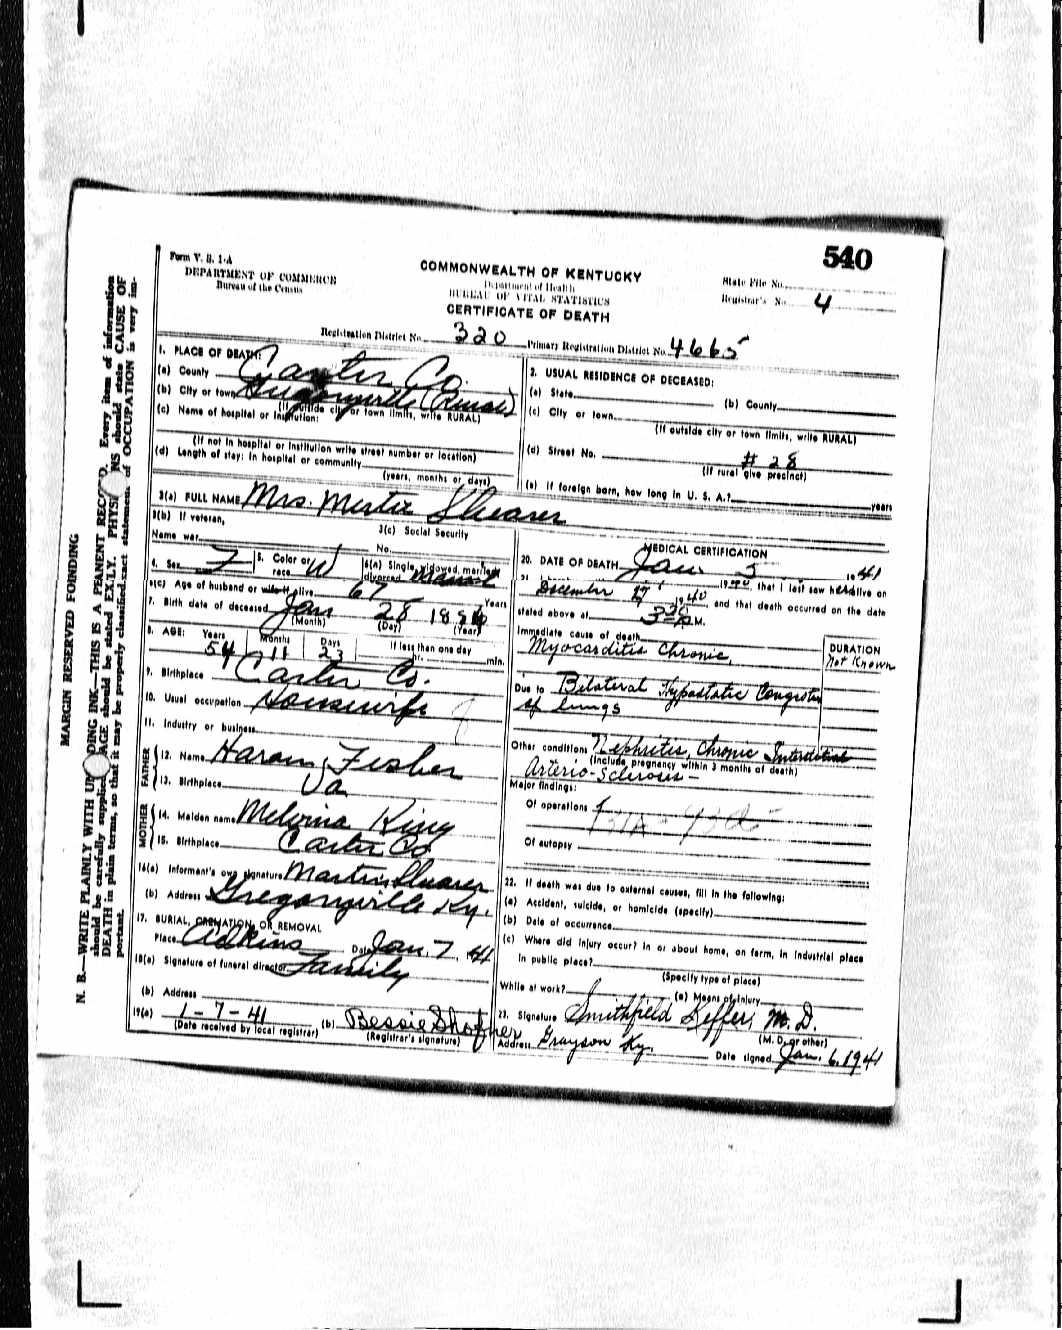 540
Form V. S. 1-A
DEPARTMENT OF COMMERCE
Bureau of the Census
COMMONWEALTH OF KENTUCKY
Department of Health
BUREAU OF VITAL STATISTICS
CERTIFICATE OF DEATH
State File No.
Registrar's No. 4
Registration District No. 320 Primary Registration District No. 4665
1. PLACE OF DEATH:
(a) County Carter Co.
(b) City or town Gregoryville (Rural)
(If outside city or town limits, write RURAL)
(c) Name of hospital or Institution:
(If not in hospital or institution write street number or location)
(d) Length of stay: In hospital or community
(years, months or days)
2. USUAL RESIDENCE OF DECEASED:
(a) State (b) County
(c) City or town
(If outside city or town limits, write RURAL)
(d) Street No. # 28
(If rural give precinct)
(e) If foreign born, how long in U. S. A.? years
3(a) FULL NAME Mrs. Mertie Shearer
3(b) If veteran,
Name war
3(c) Social Security
No.
4. Sex F 5. Color or race W 6(a) Single, widowed, married, divorced
6(c) Age of husband or wife if alive 67 Years
7. Birth date of deceased Jan 28
(Month) (Day) (Year)
8. AGE: Years Months Days If less than one day
54 11 23 hr. min.
9. Birthplace Carter Co.
10. Usual occupation Housewife
11. Industry or business
FATHER
12. Name Haram Fisher
13. Birthplace Va
MOTHER
14. Maiden name Melvina King
15. Birthplace Carter Co
16(a) Informant's own signature Martin Shearer
(b) Address Gregoryville Ky.
17. BURIAL, CREMATION, OR REMOVAL
Place Adkins Date Jan. 7, 41
18(a) Signature of funeral director Family
(b) Address
19(a) 1-7-41 (b) Bessie Shofner
(Date received by local registrar) (Registrar's signature)
MEDICAL CERTIFICATION
20. DATE OF DEATH Jan. 5 1941
21. December 17 1940 that I last saw her alive on
1940 and that death occurred on the date
stated above at M.
Immediate cause of death
Myocarditis Chronic,
DURATION
Not Known
Due to Bilateral Hypostatic Congestion
of lungs
Other conditions Nephritis, Chronic Interstitial
(Include pregnancy within 3 months of death)
Arterio-Sclerosis -
Major findings:
Of operations
Of autopsy
22. If death was due to external causes, fill in the following:
(a) Accident, suicide, or homicide (specify)
(b) Date of occurrence
(c) Where did injury occur? In or about home, on farm, in industrial place
In public place?
(Specify type of place)
While at work? (e) Means of Injury
23. Signature J. Smithfield Keffer, M. D.
(M. D. or other)
Address Grayson Ky. Date signed Jan. 6, 1941
MARGIN RESERVED FOR BINDING
N. B.—WRITE PLAINLY WITH UNFADING INK—THIS IS A PERMANENT RECORD. Every item of information
should be carefully supplied. AGE should be stated EXACTLY. PHYSICIANS should state CAUSE OF
DEATH in plain terms, so that it may be properly classified. Exact statement of OCCUPATION is very im-
portant.